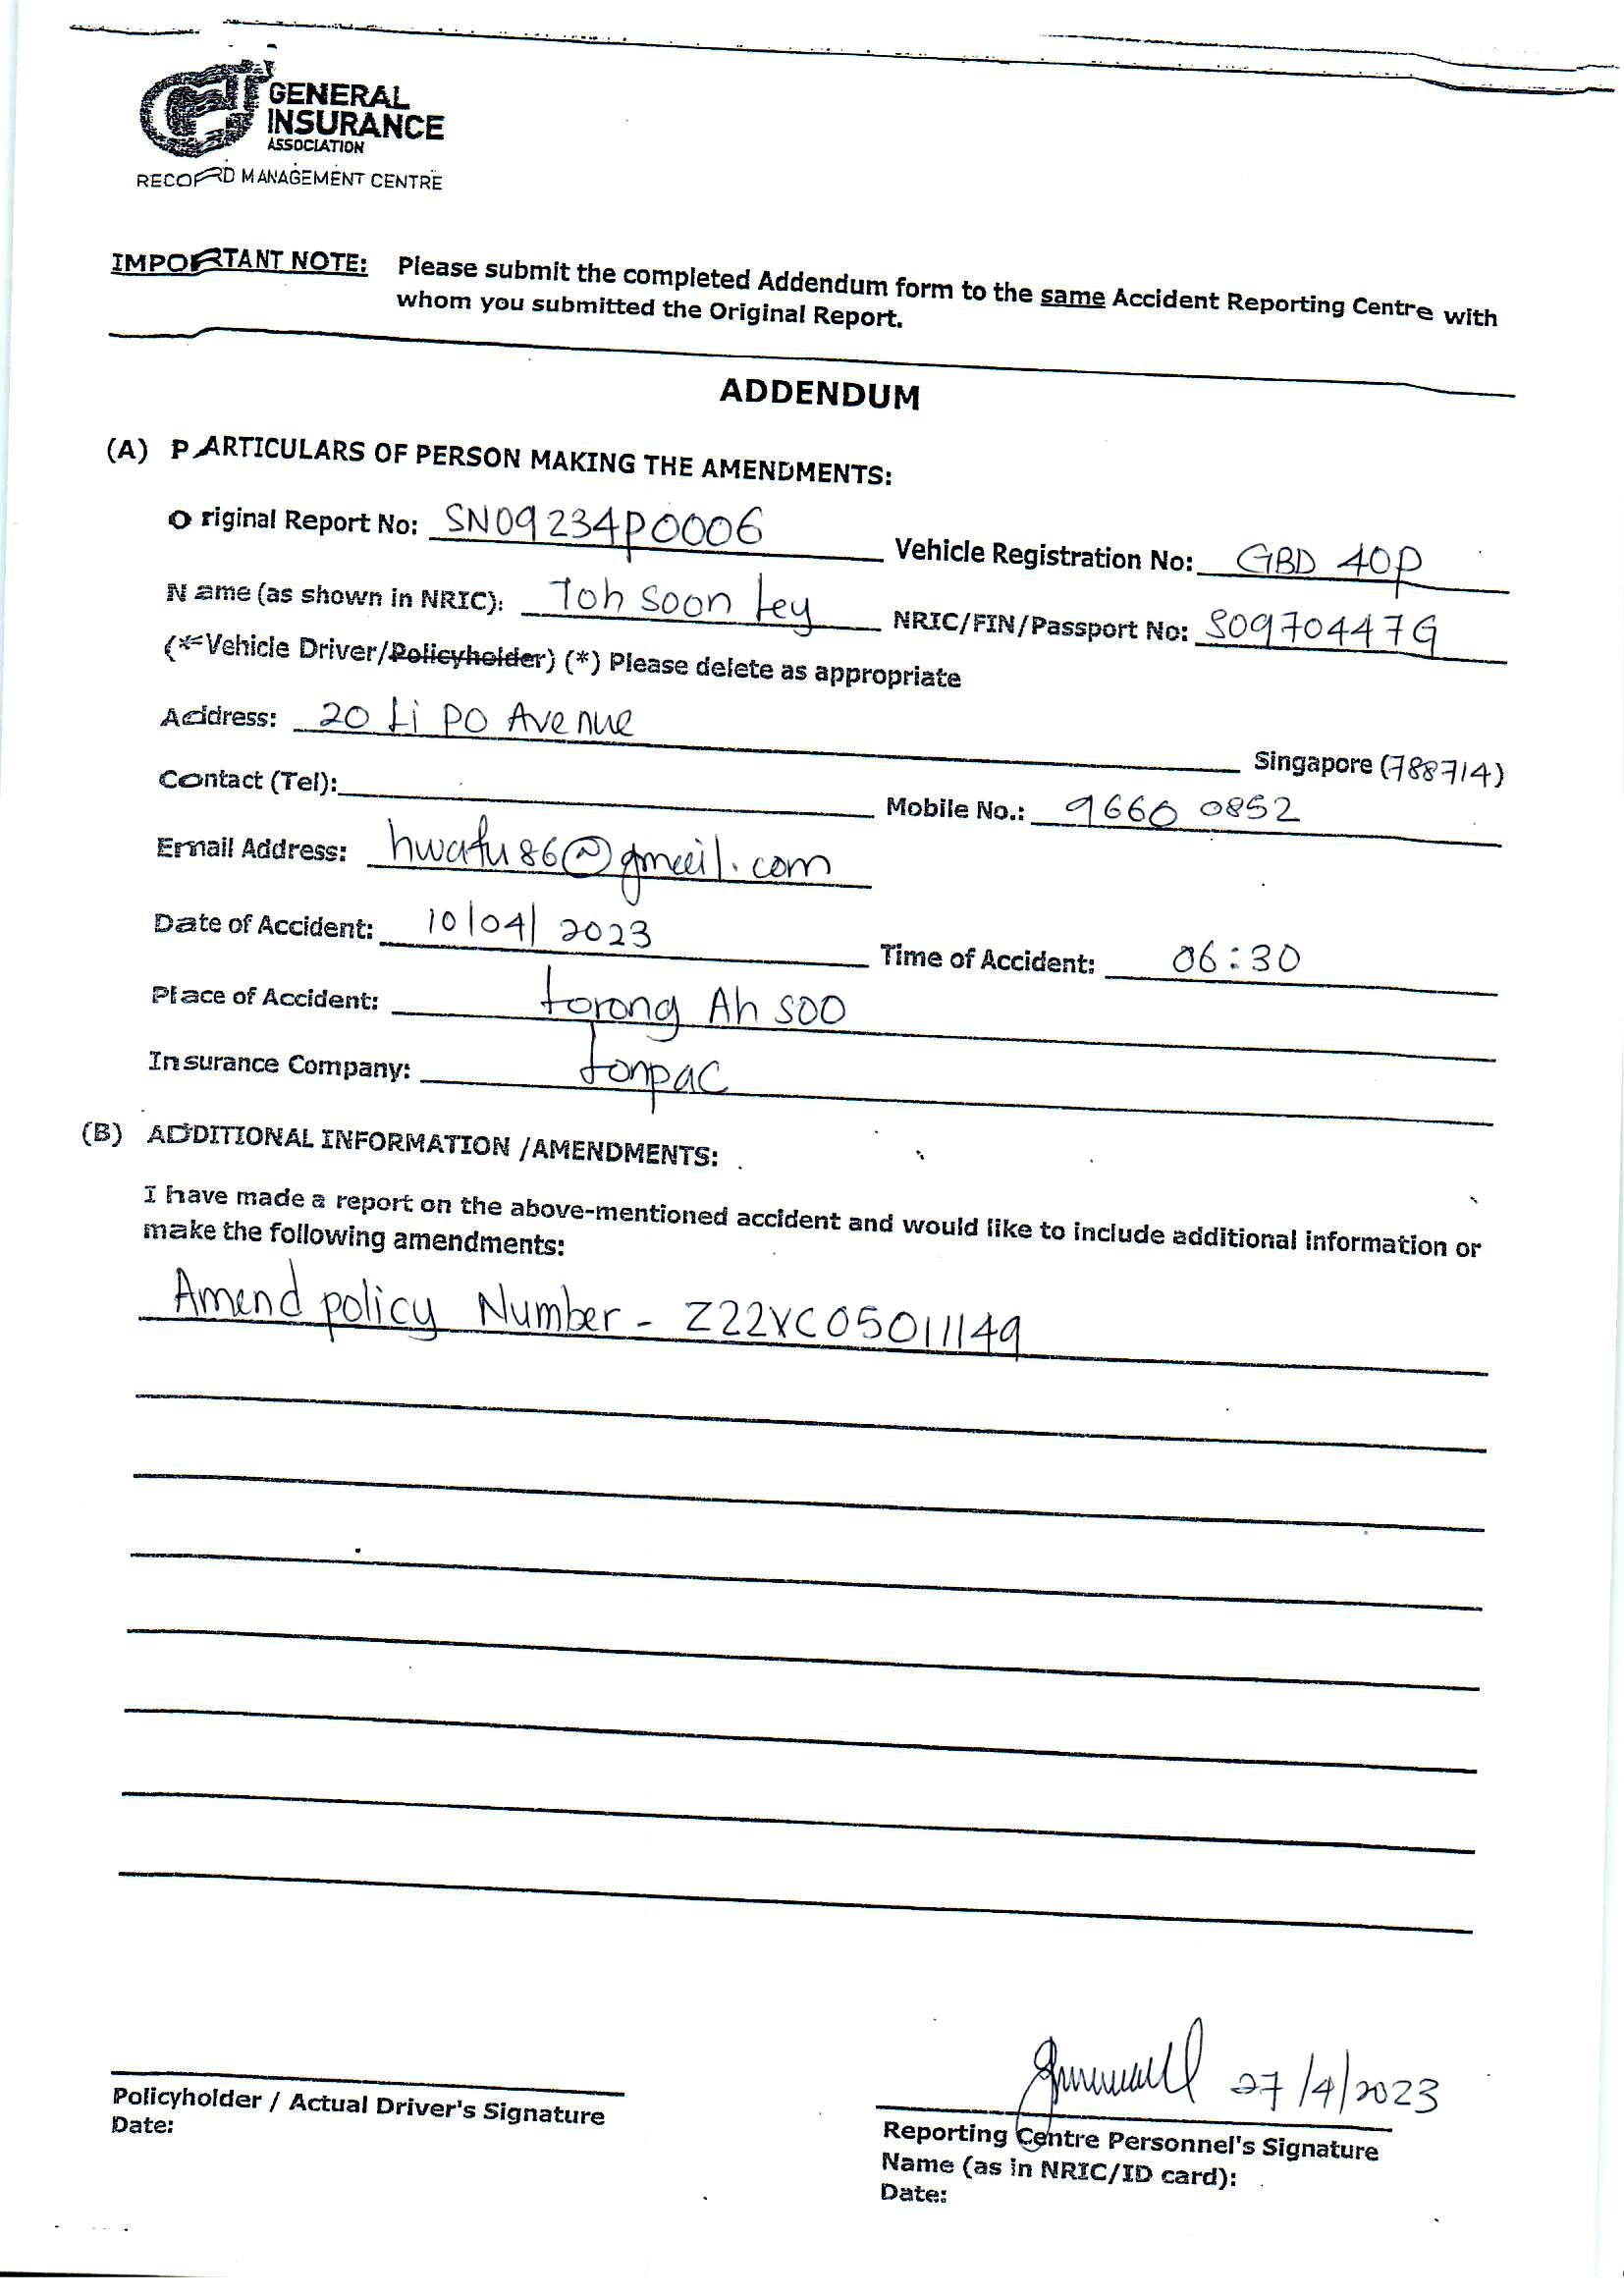 GENERAL
INSURANCE
ASSOCIATION
RECORD MANAGEMENT CENTRE
IMPORTANT NOTE: Please submit the completed Addendum form to the same Accident Reporting Centre with
whom you submitted the Original Report.
ADDENDUM
(A) PARTICULARS OF PERSON MAKING THE AMENDMENTS:
Original Report No: SN09234P0006 Vehicle Registration No: GBD 40P
Name (as shown in NRIC): Toh Soon Ley NRIC/FIN/Passport No: S0970447G
(*Vehicle Driver/Policyholder) (*) Please delete as appropriate
Address: 20 Li Po Avenue Singapore (788714)
Contact (Tel): Mobile No.: 9660 0852
Email Address: hwafu86@gmail.com
Date of Accident: 10/04/2023 Time of Accident: 06:30
Place of Accident: Lorong Ah Soo
Insurance Company: Lonpac
(B) ADDITIONAL INFORMATION /AMENDMENTS:
I have made a report on the above-mentioned accident and would like to include additional information or
make the following amendments:
Amend policy Number - Z22VC05011149
27/4/2023
Policyholder / Actual Driver's Signature
Date:
Reporting Centre Personnel's Signature
Name (as in NRIC/ID card):
Date: